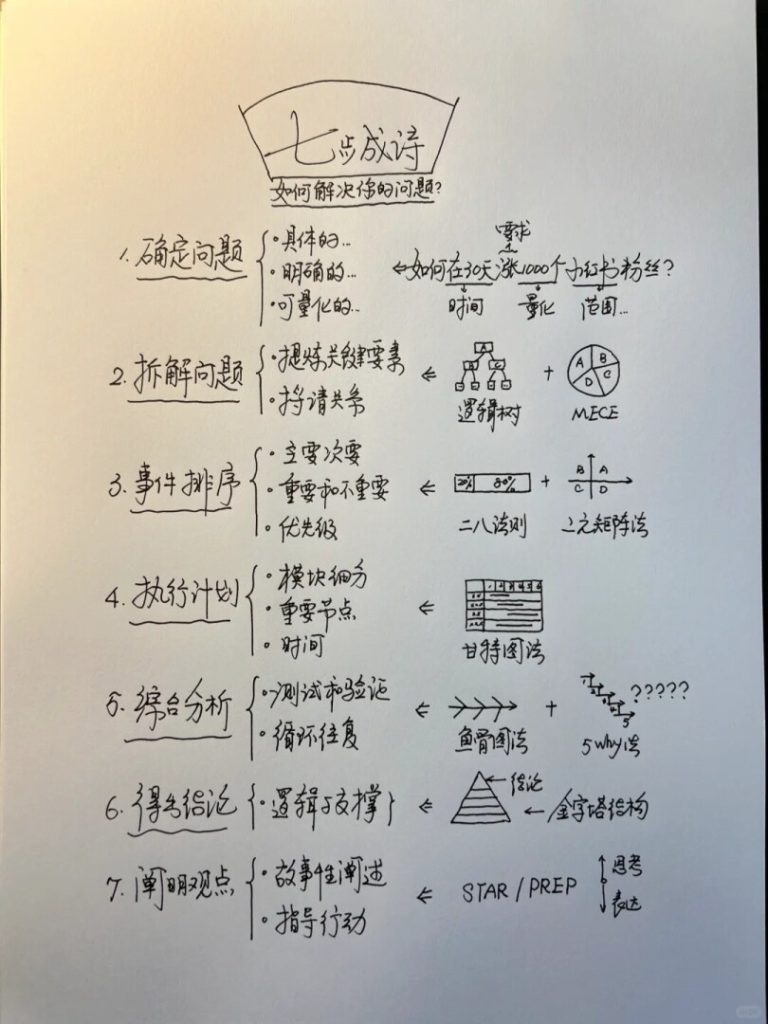 七步成诗
如何解决你的问题?
1. 确定问题
• 具体的...
• 明确的...
• 可量化的...
需求
如何在30天涨1000个小红书粉丝?
时间 量化 范围...
2. 拆解问题
• 提炼关键要素
• 捋请关系
A
A B C D
逻辑树 + MECE
3. 事件排序
• 主要次要
• 重要和不重要
• 优先级
20% 80% + B A C D
二八法则 二元矩阵法
4. 执行计划
• 模块细分
• 重要节点
• 时间
甘特图法
5. 综合分析
• 测试和验证
• 循环往复
+ ?????
鱼骨图法 5why法
6. 得出结论
• 逻辑与支撑
结论
金字塔结构
7. 阐明观点
• 故事性阐述
• 指导行动
STAR / PREP
思考
表达